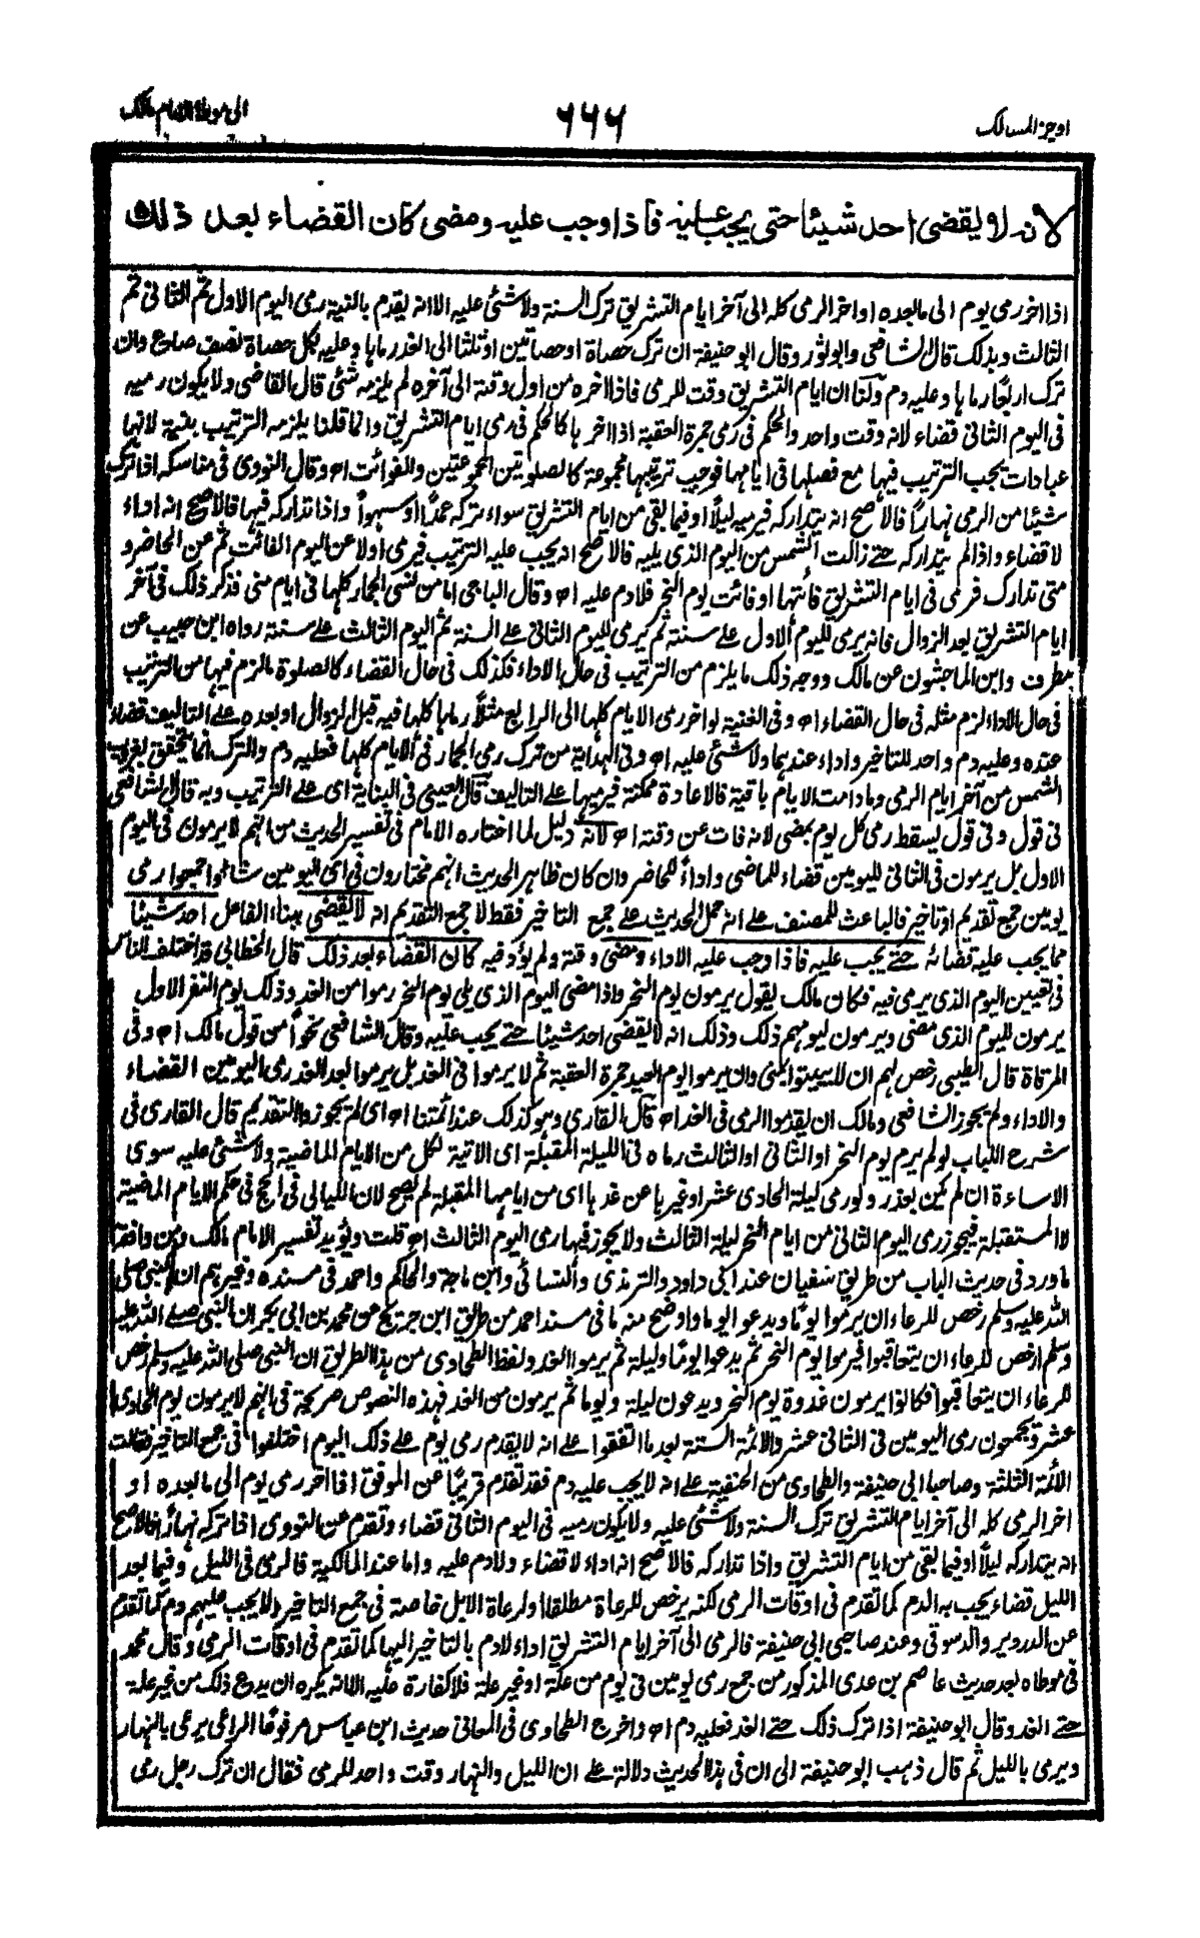 اوجز المسالك
٦٦٦
الى موطا الامام مالك
لانه لا يقضى احد شيئا حتى يجب عليه فاذا وجب عليه ومضى كان القضاء بعد ذلك
اذا اخر رمى يوم الى ما بعده او اخر الرمى كله الى آخر ايام التشريق ترك السنة ولا شئ عليه الا انه يقدم بالنية رمى اليوم الاول ثم الثانى ثم
الثالث وبذلك قال الشافعى وابو ثور وقال ابو حنيفة ان ترك حصاة او حصاتين او ثلثا الى الغد رماها وعليه لكل حصاة نصف صاع وان
ترك اربعًا رماها وعليه دم ولنا ان ايام التشريق وقت للرمى فاذا اخره من اول وقته الى آخره لم يلزمه شئ قال القاضى ولا يكون رميه
فى اليوم الثانى قضاء لانه وقت واحد والحكم فى رمى جمرة العقبة اذا اخرها كالحكم فى رمى ايام التشريق وانما قلنا يلزمه الترتيب بنية لانها
عبادات يجب الترتيب فيها مع فعلها فى ايامها فوجب ترتيبها مجموعة كالصلوتين المجموعتين والفوائت اه وقال النووى فى مناسكه اذا ترك
شيئا من الرمى نهارًا فالاصح انه يتداركه فيرميه ليلًا او فيما بقى من ايام التشريق سواء تركه عمدًا او سهوًا واذا تداركه فيها فالاصح انه اداء
لا قضاء واذا لم يتداركه حتے زالت الشمس من اليوم الذى يليه فالاصح انه يجب عليه الترتيب فيرمى اولا عن اليوم الفائت ثم عن الحاضر و
متى تدارك فرمى فى ايام التشريق فائتها او فائت يوم النحر فلا دم عليه اه وقال الباجى اما من نسى الجمار كلها فى ايام منى فذكر ذلك فى آخر
ايام التشريق بعد الزوال فانه يرمى لليوم الاول علے سنة ثم يرمى لليوم الثانى علے السنة ثم اليوم الثالث علے سنته رواه ابن حبيب عن
مطرف وابن الماجشون عن مالك ووجه ذلك ما يلزم من الترتيب فى حال الاداء فكذلك فى حال القضاء كالصلوة ما لزم فيها من الترتيب
فى حال الاداء لزم مثله فى حال القضاء اه وفى الغنية لو اخر رمى الايام كلها الى الرابع مثلًا رماها كلها فيه قبل الزوال او بعده علے التاليف قضاء
عنده وعليه دم واحد للتاخير واداء عندهما ولا شئ عليه اه وفى الهداية من ترك رمى الجمار فى الايام كلها فعليه دم والترك انما يتحقق بغروب
الشمس من آخر ايام الرمى وما دامت الايام باقية فالاعادة ممكنة فيرميها علے التاليف قال العينى فى البناية اى علے الترتيب وبه قال الشافعى
فى قول وفى قول يسقط رمى كل يوم بمضى لانه فات عن وقته اه لانه دليل لما اختاره الامام فى تفسير الحديث من انهم لا يرمون فى اليوم
الاول بل يرمون فى الثانى لليومين قضاء للماضى واداءً للحاضر وان كان ظاهر الحديث انهم مختارون فى اى اليومين شاؤا جمعوا رمى
يومين جمع تقديم او تاخير فالباعث للمصنف علے انه حمل الحديث علے جمع التاخير فقط لا جمع التقديم انه لا يقضى ببناء الفاعل احد شيئا
مما يجب عليه قضائه حتے يجب عليه فاذا وجب عليه الاداء ومضى وقته ولم يؤد فيه كان القضاء بعد ذلك قال الخطابى قد اختلف الناس
فى تعيين اليوم الذى يرمى فيه فكان مالك يقول يرمون يوم النحر واذا مضى اليوم الذى يلى يوم النحر رموا من الغد وذلك يوم النفر الاول
يرمون لليوم الذى مضى ويرمون ليومهم ذلك وذلك انه لا يقضى احد شيئا حتے يجب عليه وقال الشافعى نحوًا من قول مالك اه وفى
المرقاة قال الطيبى رخص لهم ان لا يبيتوا بمنى وان يرموا يوم العيد جمرة العقبة ثم لا يرموا فى الغد بل يرموا بعد الغد رمى اليومين القضاء
والاداء ولم يجوز الشافعى ومالك ان يقدموا الرمى فى الغد اه قال القارى وهو كذلك عند ائمتنا اه اى لم يجوزوا التقديم قال القارى فى
شرح اللباب لو لم يرم يوم النحر او الثانى او الثالث رماه فى الليلة المقبلة اى الآتية لكل من الايام الماضية ولا شئ عليه سوى
الاساءة ان لم يكن بعذر ولو رمى ليلة الحادى عشر او غيرها عن غدها اى من ايامها المقبلة لم يصح لان الليالى فى الحج فى حكم الايام الماضية
لا المستقبلة فيجوز رمى اليوم الثانى من ايام النحر ليلة الثالث ولا يجوز فيها رمى اليوم الثالث اه قلت ويؤيد تفسير الامام مالك ومن وافقه
ما ورد فى حديث الباب من طريق سفيان عند ابى داود والترمذى والنسائى وابن ماجة والحاكم واحمد فى مسنده وغيرهم ان النبى صلى
الله عليه وسلم رخص للرعاء ان يرموا يومًا ويدعوا يوما واوضح منه ما فى مسند احمد من طريق ابن جريج عن محمد بن ابى بكر ان النبى صلے الله عليه
وسلم ارخص للرعاء ان يتعاقبوا فيرموا يوم النحر ثم يدعوا يومًا وليلة ثم يرموا الغد ولفظ الطحاوى من هذا الطريق ان النبى صلى الله عليه وسلم رخص
للرعاء ان يتعاقبوا فكانوا يرمون غدوة يوم النحر ويدعون ليلة ويوما ثم يرمون من الغد فهذه النصوص صريحة فى انهم لا يرمون يوم الحادى
عشر ويجمعون رمى اليومين فى الثانى عشر والائمة الستة بعد ما اتفقوا علے انه لا يقدم رمى يوم علے ذلك اليوم اختلفوا فى جمع التاخير فقالت
الائمة الثلثة وصاحبا ابى حنيفة والطحاوى من الحنفية علے انه لا يجب عليه دم فقد تقدم قريبًا عن الموفق اذا اخر رمى يوم الى ما بعده او
اخر الرمى كله الى آخر ايام التشريق ترك السنة ولا شئ عليه ولا يكون رميه فى اليوم الثانى قضاء وتقدم عن النووى اذا تركه نهارًا فالاصح
انه يتداركه ليلًا او فيما بقى من ايام التشريق واذا تداركه فالاصح انه اداء لا قضاء ولا دم عليه واما عند المالكية فالرمى فى الليل وفيما بعد
الليل قضاء يجب به الدم كما تقدم فى اوقات الرمى لكنه يرخص للرعاة مطلقا او لرعاة الابل خاصة فى جمع التاخير ولا يجب عليهم دم كما تقدم
عن الدردير والدسوقى وعند صاحبى ابى حنيفة فالرمى الى آخر ايام التشريق اداء لا دم بالتاخير اليها كما تقدم فى اوقات الرمى وقال محمد
فى موطاه بعد حديث عاصم بن عدى المذكور من جمع رمى يومين فى يوم من علة او غير علة فلا كفارة عليه الا انه يكره ان يدع ذلك من غير علة
حتے الغد وقال ابو حنيفة اذا ترك ذلك حتے الغد فعليه دم اه واخرج الطحاوى فى المعانى حديث ابن عباس مرفوعًا الراعى يرعى بالنهار
ويرمى بالليل ثم قال ذهب ابو حنيفة الى ان فى هذا الحديث دلالة علے ان الليل والنهار وقت واحد للرمى فقال ان ترك رجل رمى